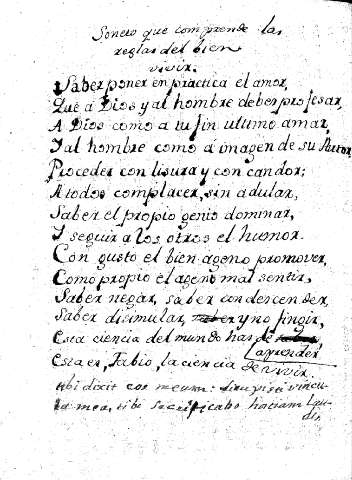 Soneto que comprende las
reglas del bien
vivir.
Saber poner en practica el amor,
Que á Dios y al hombre deber profesar,
A Dios como a tu fin ultimo amar,
I al hombre como a imagen de su Autor,
Proceder con lisura y con candor;
A todos complacer, sin adular,
Saber el propio genio dominar,
I seguir a los otros el humor.
Con gusto el bien ageno promover,
Como propio el ageno mal sentir,
Saber negar, saber condescender,
Saber disimular, y no fingir,
Esta ciencia del mundo has de
aprender
Esta es, Fabio, la ciencia de vivir.
tibi dixit cor meum: dirupisti vincu-
la mea, tibi sacrificabo hostiam lau-
dis,